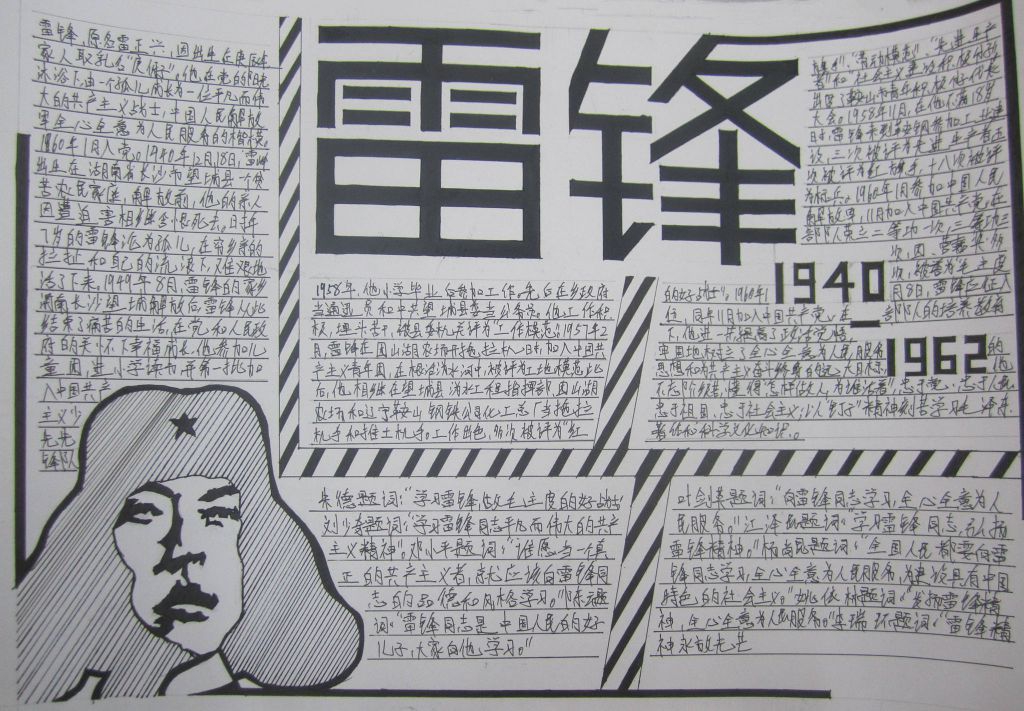 雷锋
1940
1962
雷锋,原名雷正兴,因出生在庚辰年
家人取乳名"庚伢子"。他在党的阳光
沐浴下由一个孤儿成长为一位平凡而伟
大的共产主义战士,中国人民解放
军全心全意为人民服务的楷模。
1960年11月入党。1940年12月18日,雷锋
出生在湖南省长沙市望城县一个贫
苦农民家庭,解放前,他的亲人
因遭迫害相继含恨死去,时年
7岁的雷锋沦为孤儿,在穷乡亲的
拉扯和自己的流浪下,艰难地
活了下来,1949年8月,雷锋的家乡
湖南长沙望城解放后雷锋从此
结束了痛苦的生活,在党和人民政
府的关怀下幸福成长,他参加儿
童团,进小学读书,并第一批加
入中国共产
主义少
年先
锋队
1956年,他小学毕业后参加工作,先后在乡政府
当通讯员和中共望城县委当公务员。他工作积
极,埋头苦干,被县委机关评为工作模范。1957年2
月,雷锋在团山湖农场开拖拉机,加入中国共
产主义青年团,在根治沩水河中被评为工地模范。此
后,他相继在望城县沩水工程指挥部、团山湖
农场和辽宁鞍山钢铁公司化工总厂当拖拉
机手和推土机手。工作出色,多次被评为"红
旗手"、"劳动模范"、"先进生产
者"和"社会主义建设积极分子"
出席了鞍山市青年积极分子代表
大会。1958年11月,在他不满18岁
时,雷锋来到鞍钢参加工业建
设,三次被评为先进生产者,五
次被评为红旗手,十八次被评
为标兵。1960年1月参加中国人民
解放军,11月加入中国共产党。在
部队荣立二等功一次,三等功三
次,团、营嘉奖多
次,被誉为"毛主席
的好战士"。1960年1
月8日,雷锋应征入
伍,同年11月加入中国共产党,在
部队的培养教育
下,他进一步提高了政治觉悟,
牢固地树立了全心全意为人民服务
思想和为共产主义奋斗终身的远大目标,
他
态阶级,懂得"怎样做人,为谁活着",忠于党、忠于人民、
忠于祖国、忠于社会主义,以"钉子"精神刻苦学习毛泽东
著作和科学文化知识。
朱德题词:"学习雷锋做毛主席的好战士"
刘少奇题词:"学习雷锋同志平凡而伟大的共产
主义精神"。邓小平题词:"谁愿当一个真
正的共产主义者,就应该向雷锋同
志的品德和风格学习。"陈云题
词:"雷锋同志是中国人民的好
儿子,大家向他学习。"
叶剑英题词:"向雷锋同志学习,全心全意为人
民服务。"江泽民题词:"学习雷锋同志,弘扬
雷锋精神。"杨尚昆题词:"全国人民都要向雷
锋同志学习,全心全意为人民服务,为建设具有中国
特色的社会主义。"姚依林题词:"发扬雷锋精
神,全心全意为人民服务。"李瑞环题词:"雷锋精
神永放光芒